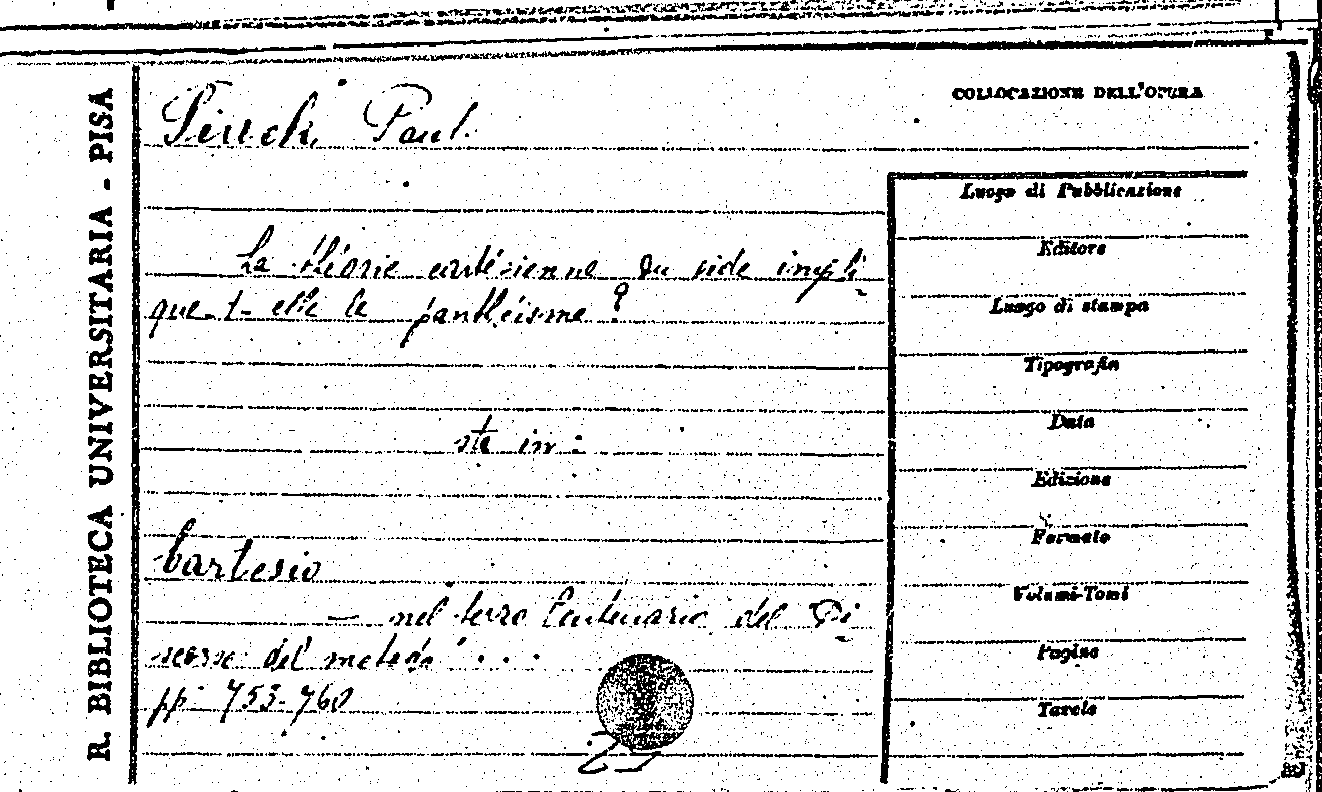 R. BIBLIOTECA UNIVERSITARIA - PISA
Paul.
La théorie cartésienne du vide impli-
que-t-elle le panthéisme?
sta in:
Cartesio
- nel terzo Centenario del Di-
scorso del metodo" . . .
pp. 753-760
COLLOCAZIONE DELL'OPERA
Luogo di Pubblicazione
Editore
Luogo di stampa
Tipografia
Data
Edizione
8.
Formato
Volumi-Tomi
Pagine
Tavole